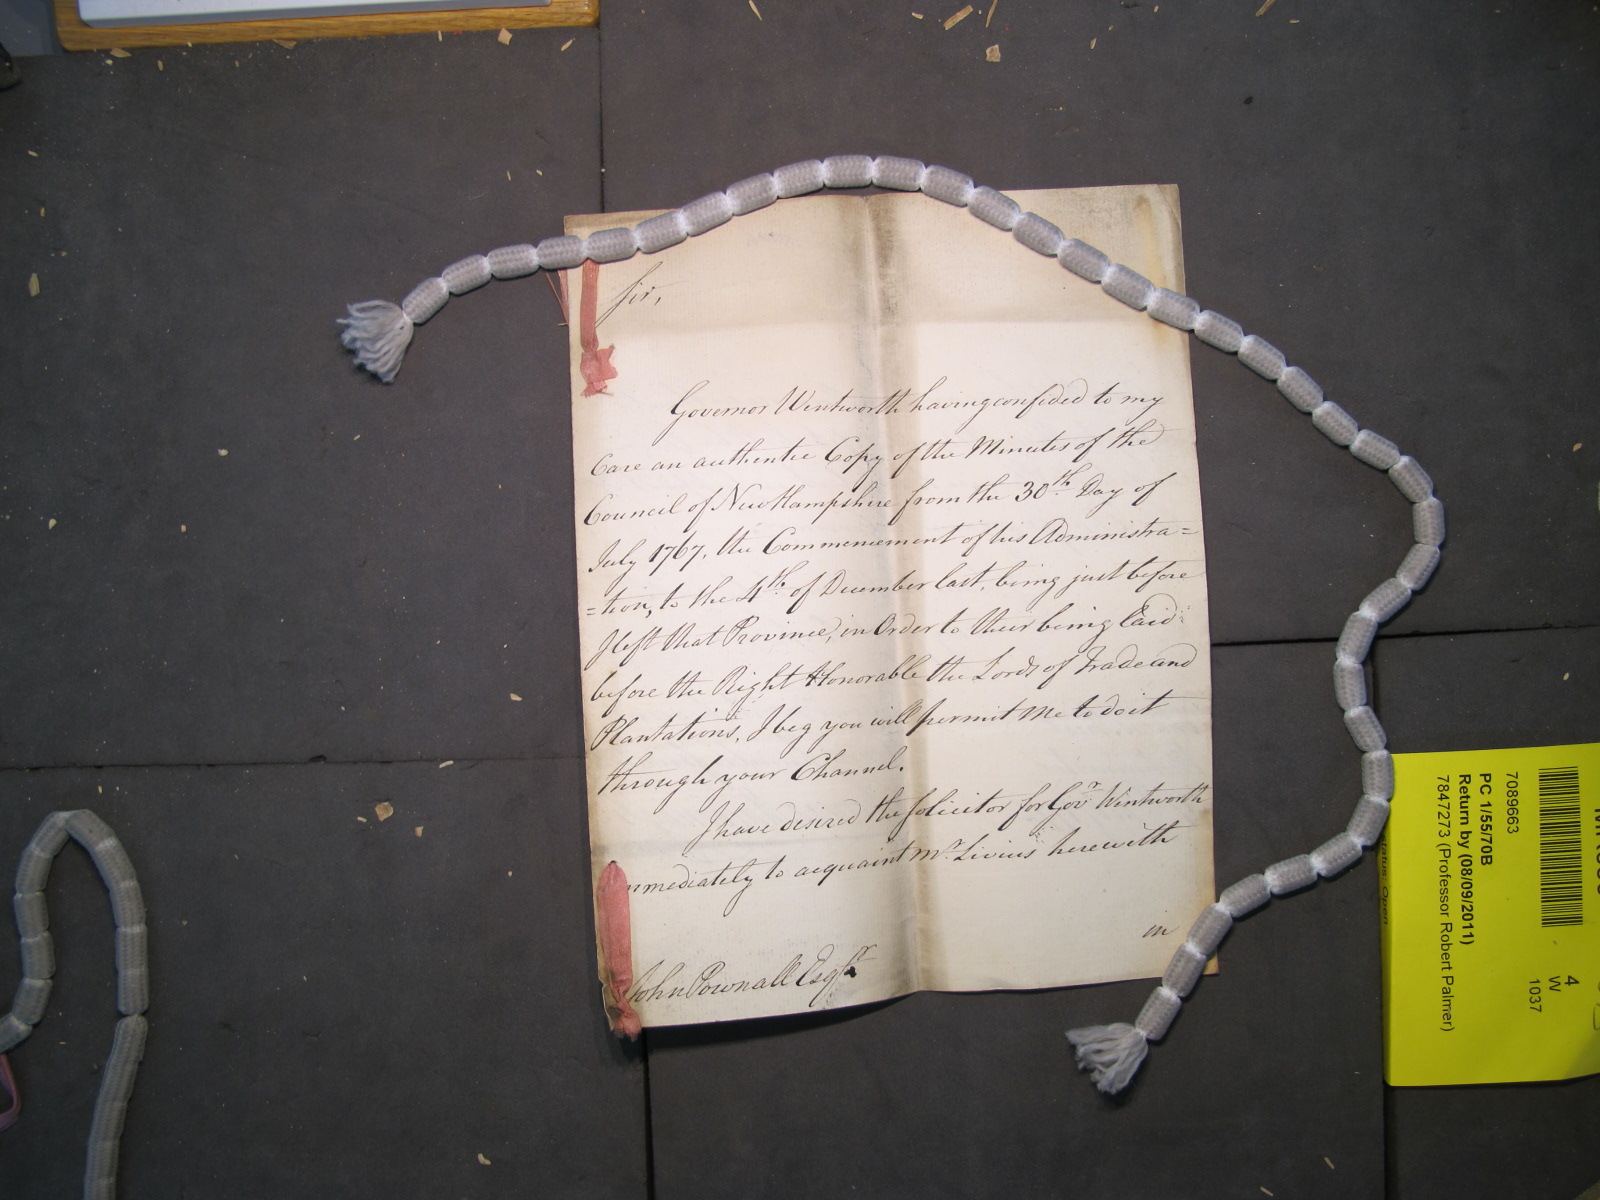 Sir,
Governor Wentworth having confided to my
Care an authentic Copy of the Minutes of the
Council of New Hampshire from the 30th Day of
July 1767, the Commencement of his Administra=
=tion, to the 4th of December last, being just before
I left that Province, in Order to their being laid
before the Right Honorable the Lords of Trade and
Plantations, I beg you will permit me to do it
through your Channel.
I have desired the Solicitor for Govr Wentworth
immediately to acquaint Mr. Livius herewith
in
John Pownall Esqr
4
W
1037
7089663
PC 1/55/70B
Return by (08/09/2011)
7847273 (Professor Robert Palmer)
Status: Open